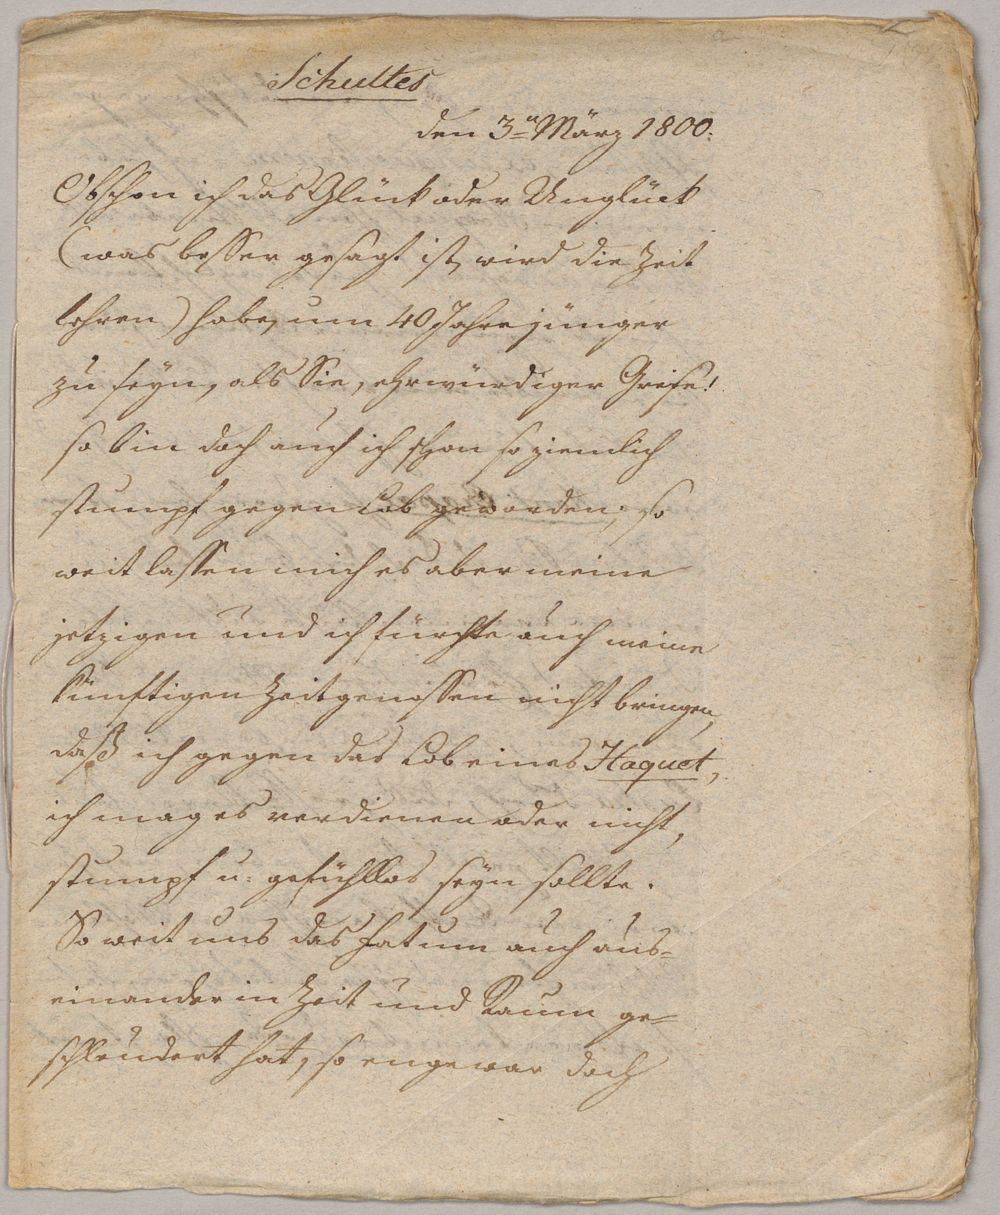 Schultes
den 3n März 1800.
Obschon ich das Glück oder Unglück
(was besser gesagt ist, wird die Zeit
lehren) habe, um 40 Jahre jünger
zu seyn, als Sie, ehrwürdiger Greise!
so bin doch auch ich schon so ziemlich
stumpf gegen Lob geworden; so
weit lassen mich es aber meine
jetzigen und ich fürchte auch meine
künftigen Zeitgenossen nicht bringen,
daß ich gegen das Lob eines Haquet,
ich mag es verdienen oder nicht,
stumpf u: gefühllos seyn sollte.
So weit uns das Fatum auch aus=
einander in Zeit und Raum ge=
schleudert hat, so enge war doch